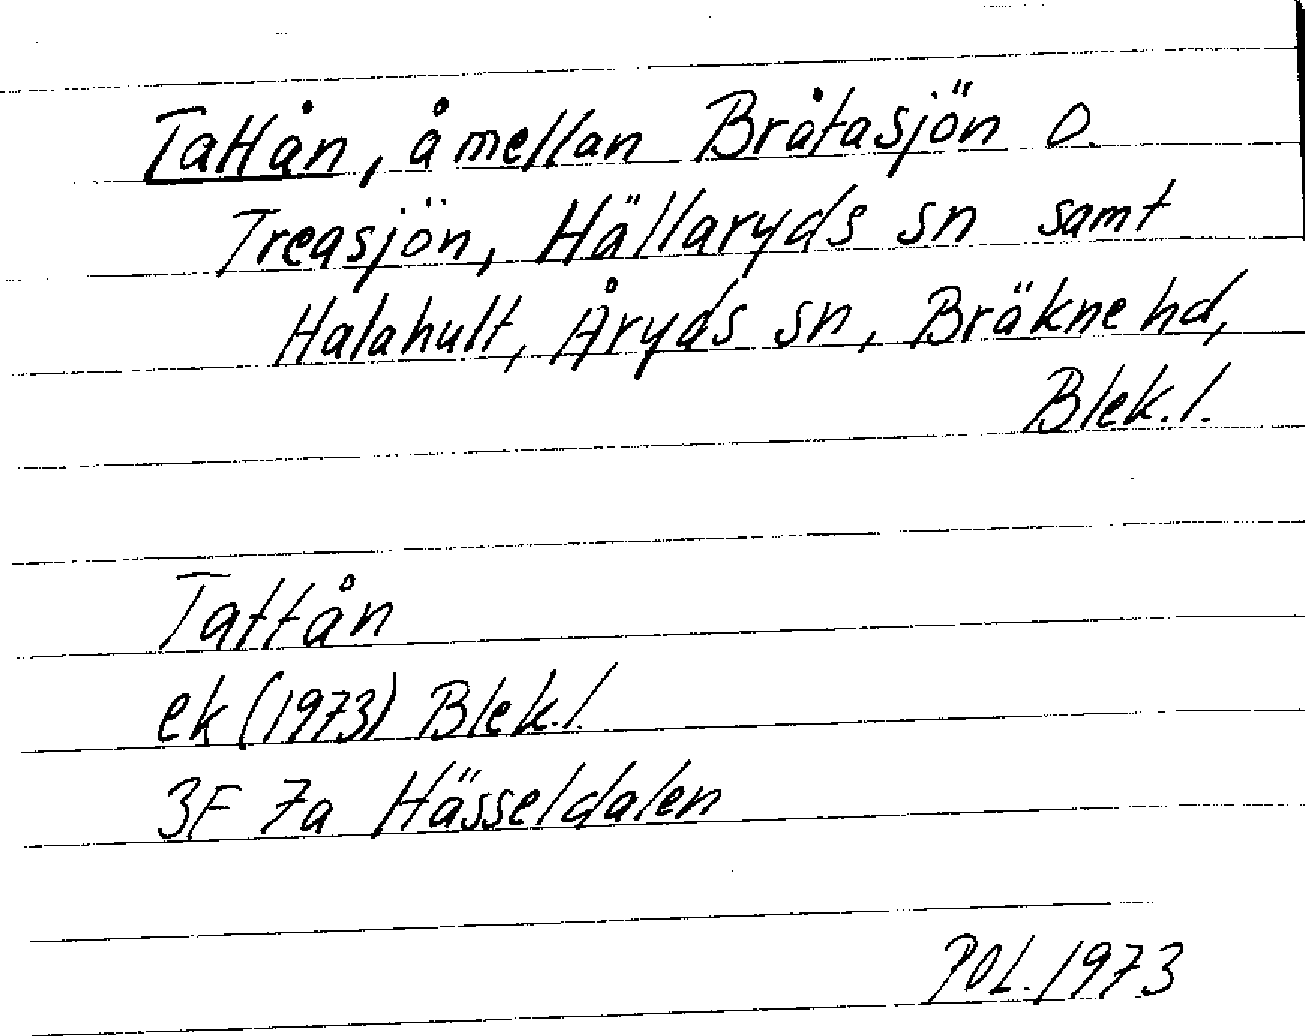 Tattån, å mellan Bråtasjön o.
Treasjön, Hällaryds sn samt
Halahult, Åryds sn, Bräkne hd,
Blek. l.
Tattån
ek (1973) Blek. l.
3F 7a Hässeldalen
POL. 1973